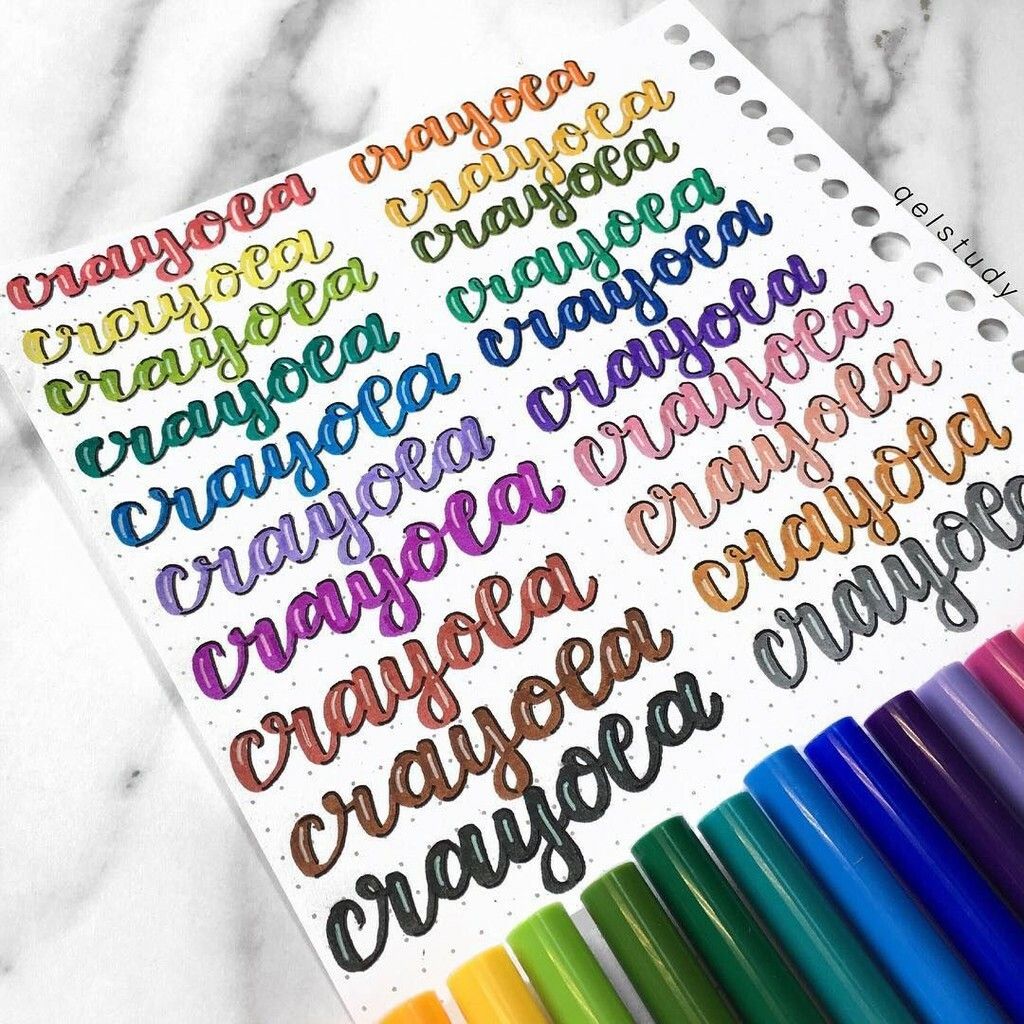 crayola crayola
crayola crayola
crayola crayola
crayola crayola
crayola crayola
crayola crayola
crayola crayola
crayola crayola
crayola crayola
crayola crayola
qelstudy